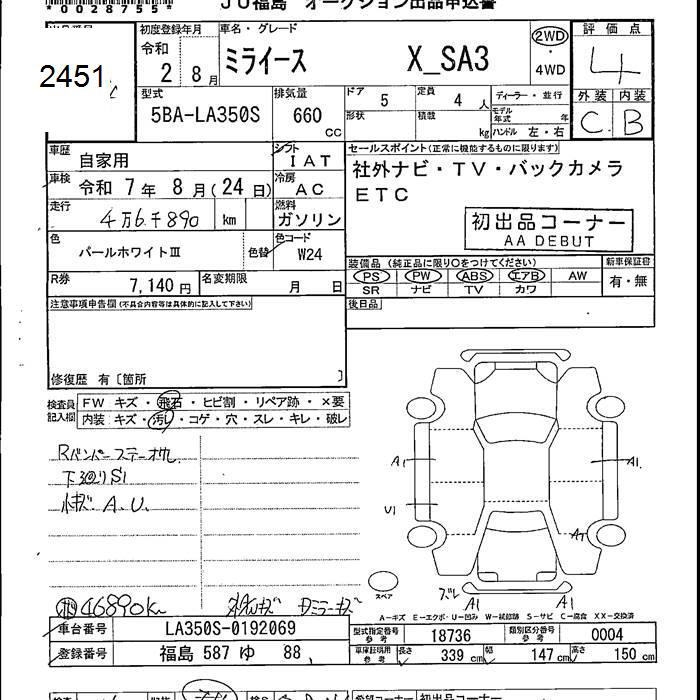 *0028755*
JU福島 オークション出品申込書
2451
初度登録年月
令和
2 8月
車名・グレード
ミライース X_SA3
2WD
4WD
評価点
4
型式
5BA-LA350S
排気量
660
CC
ドア 5
定員 4 人
ディーラー・並行
形状
積載 kg
モデル年式 年
ハンドル 左・右
外装 内装
C B
車歴
自家用
シフト
IAT
車検
令和 7年 8月(24日)
冷房
AC
走行
4万6千890 km
燃料
ガソリン
色
パールホワイトⅢ
色替
色コード
W24
R券
7,140円
名変期限
月 日
セールスポイント(正常に機能するものに限ります)
社外ナビ・TV・バックカメラ
ETC
初出品コーナー
AA DEBUT
装備品(純正品に限り○をつけてください)
PS PW ABS エアB AW
SR ナビ TV カワ
新車保証書
有・無
後日品
注意事項申告欄(不具合内容等は具体的に記入して下さい)
修復歴 有〔箇所 〕
検査員記入欄
FW キズ・飛石・ヒビ割・リペア跡・×要
内装 キズ・汚れ・コゲ・穴・スレ・キレ・破レ
Rバンパーステーオサレ
下廻りS1
小キズ A.U.
A1
A1.
U1
A1
A1
スペア
A1
46890km
A-キズ E-エクボ・U-凹み W-補修跡 S-サビ C-腐食 XX-交換済
車台番号
LA350S-0192069
登録番号
福島 587 ゆ 88
型式指定番号
参考
18736
類別区分番号
参考
0004
車庫証明用
参考
長さ 339 cm
幅 147 cm
高さ 150 cm
初出品コーナー